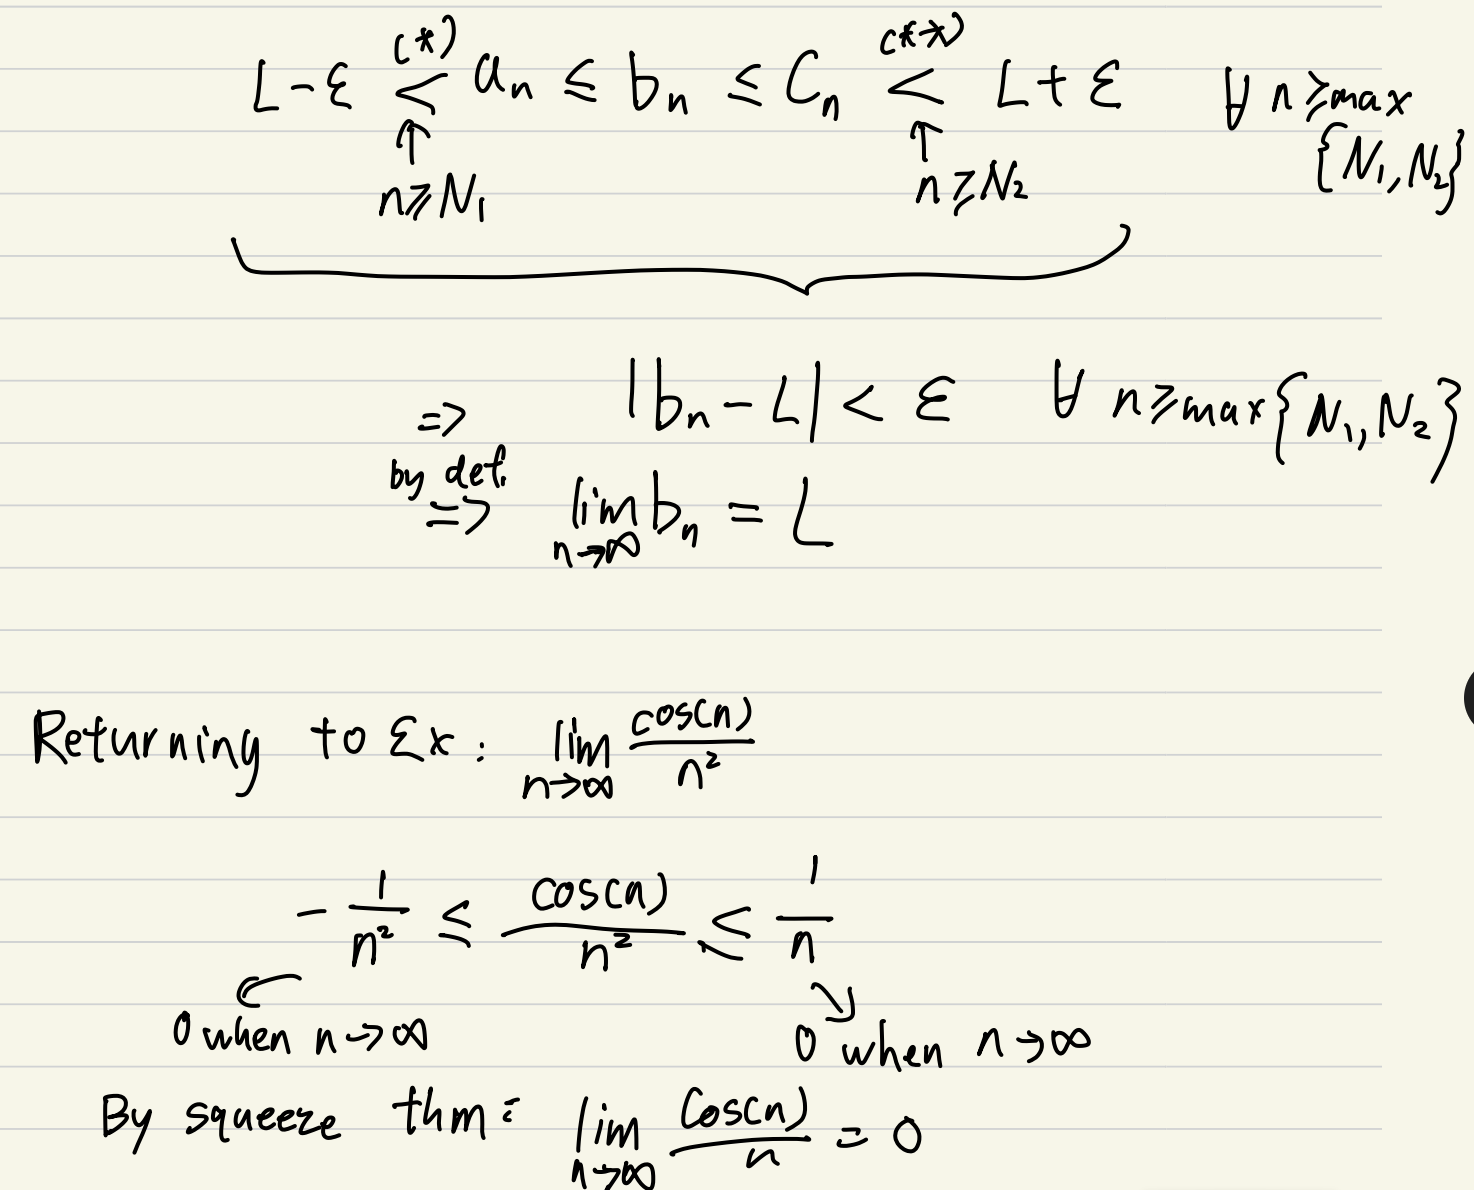 L-ε <^(*) a_n ≤ b_n ≤ C_n <^(**) L+ε ∀ n ≥ max
↑ ↑ {N_1, N_2}
n ≥ N_1 n ≥ N_2
⇒ |b_n - L| < ε ∀ n ≥ max{N_1, N_2}
by def.
⇒ lim_{n→∞} b_n = L
Returning to Ex: lim_{n→∞} cos(n)/n²
-1/n² ≤ cos(n)/n² ≤ 1/n
0 when n→∞ 0 when n→∞
By squeeze thm: lim_{n→∞} cos(n)/n = 0